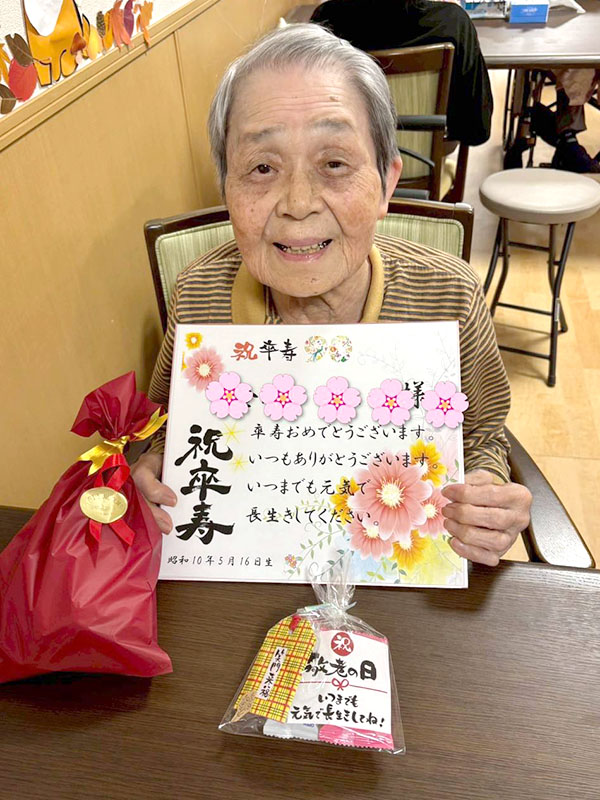 祝 卒寿
様
祝卒寿
卒寿おめでとうございます。
いつもありがとうございます。
いつまでも元気で
長生きしてください。
昭和10年5月16日生
祝
敬老の日
いつまでも
元気で長生きしてね!